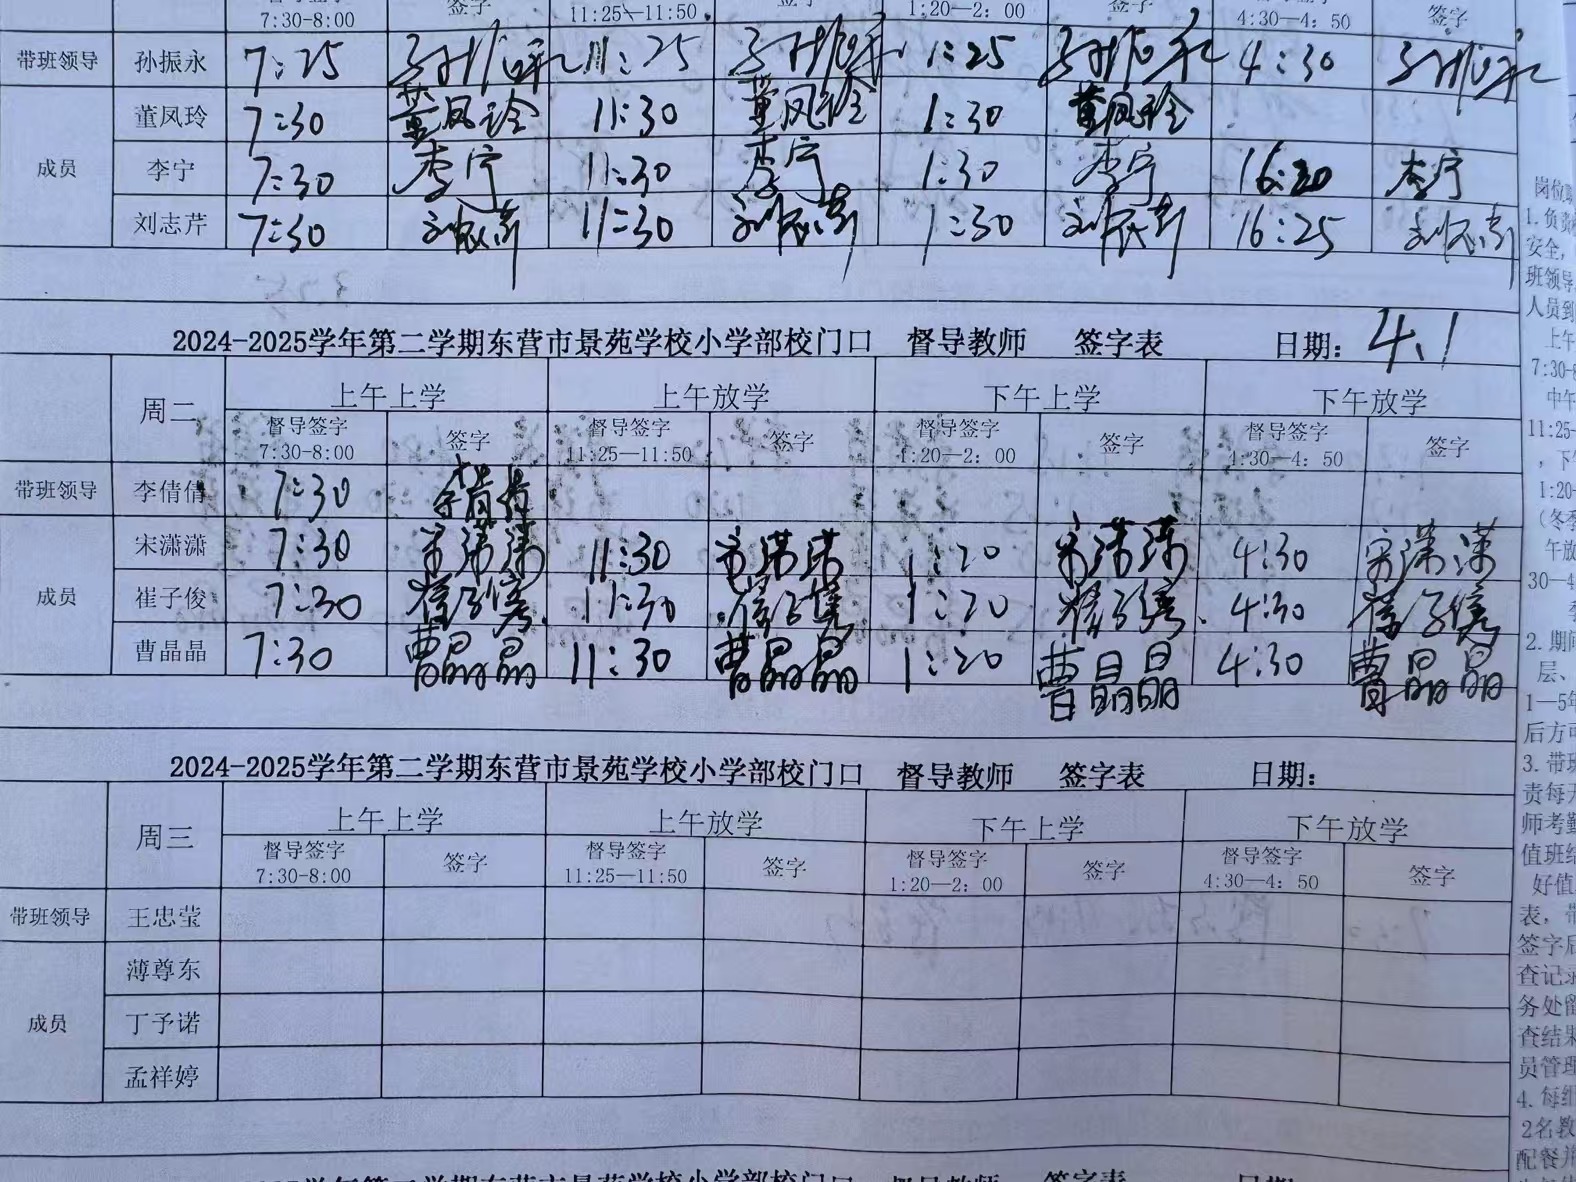 7:30-8:00 签字 11:25—11:50 签字 1:20—2: 00 签字 4:30—4: 50 签字
带班领导 孙振永 7:25 孙振永 11:25 孙振永 1:25 孙振永 4:30 孙振永
董凤玲 7:30 董凤玲 11:30 董凤玲 1:30 董凤玲
成员 李宁 7:30 李宁 11:30 李宁 1:30 李宁 16:20 李宁
刘志芹 7:30 刘志芹 11:30 刘志芹 1:30 刘志芹 16:25 刘志芹
2024-2025学年第二学期东营市景苑学校小学部校门口 督导教师 签字表 日期: 4.1
周二 上午上学 上午放学 下午上学 下午放学
督导签字 签字 督导签字 签字 督导签字 签字 督导签字 签字
7:30-8:00 11:25—11:50 1:20—2: 00 4:30—4: 50
带班领导 李倩倩 7:30 李倩倩
宋潇潇 7:30 宋潇潇 11:30 宋潇潇 1:20 宋潇潇 4:30 宋潇潇
成员 崔子俊 7:30 崔子俊 11:30 崔子俊 1:20 崔子俊 4:30 崔子俊
曹晶晶 7:30 曹晶晶 11:30 曹晶晶 1:20 曹晶晶 4:30 曹晶晶
2024-2025学年第二学期东营市景苑学校小学部校门口 督导教师 签字表 日期:
周三 上午上学 上午放学 下午上学 下午放学
督导签字 签字 督导签字 签字 督导签字 签字 督导签字 签字
7:30-8:00 11:25—11:50 1:20—2: 00 4:30—4: 50
带班领导 王忠莹
薄尊东
成员 丁予诺
孟祥婷
岗位
1. 负责
安全,
班领导
人员到
上午
7:30-8
中午
11:25-
, 下
1:20-
(冬季
午放
30—4
2. 期间
层、
1—5年
后方可
3. 带班
责每天
师考勤
值班结
好值
表, 带
签字后
查记录
务处留
查结果
员管理
4. 每组
2名教
配餐